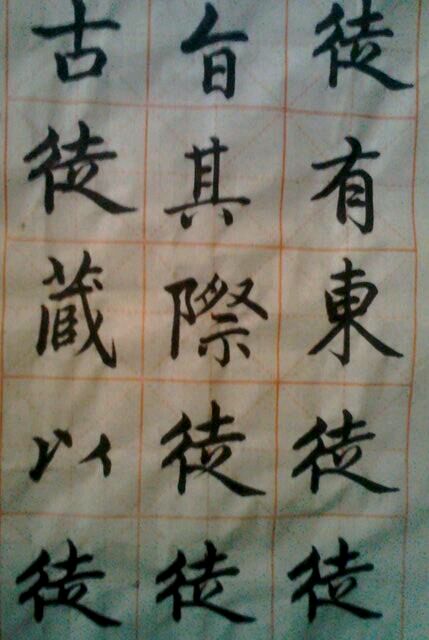 徒有東徒徒
旨其際徒徒
古徒蔵以徒